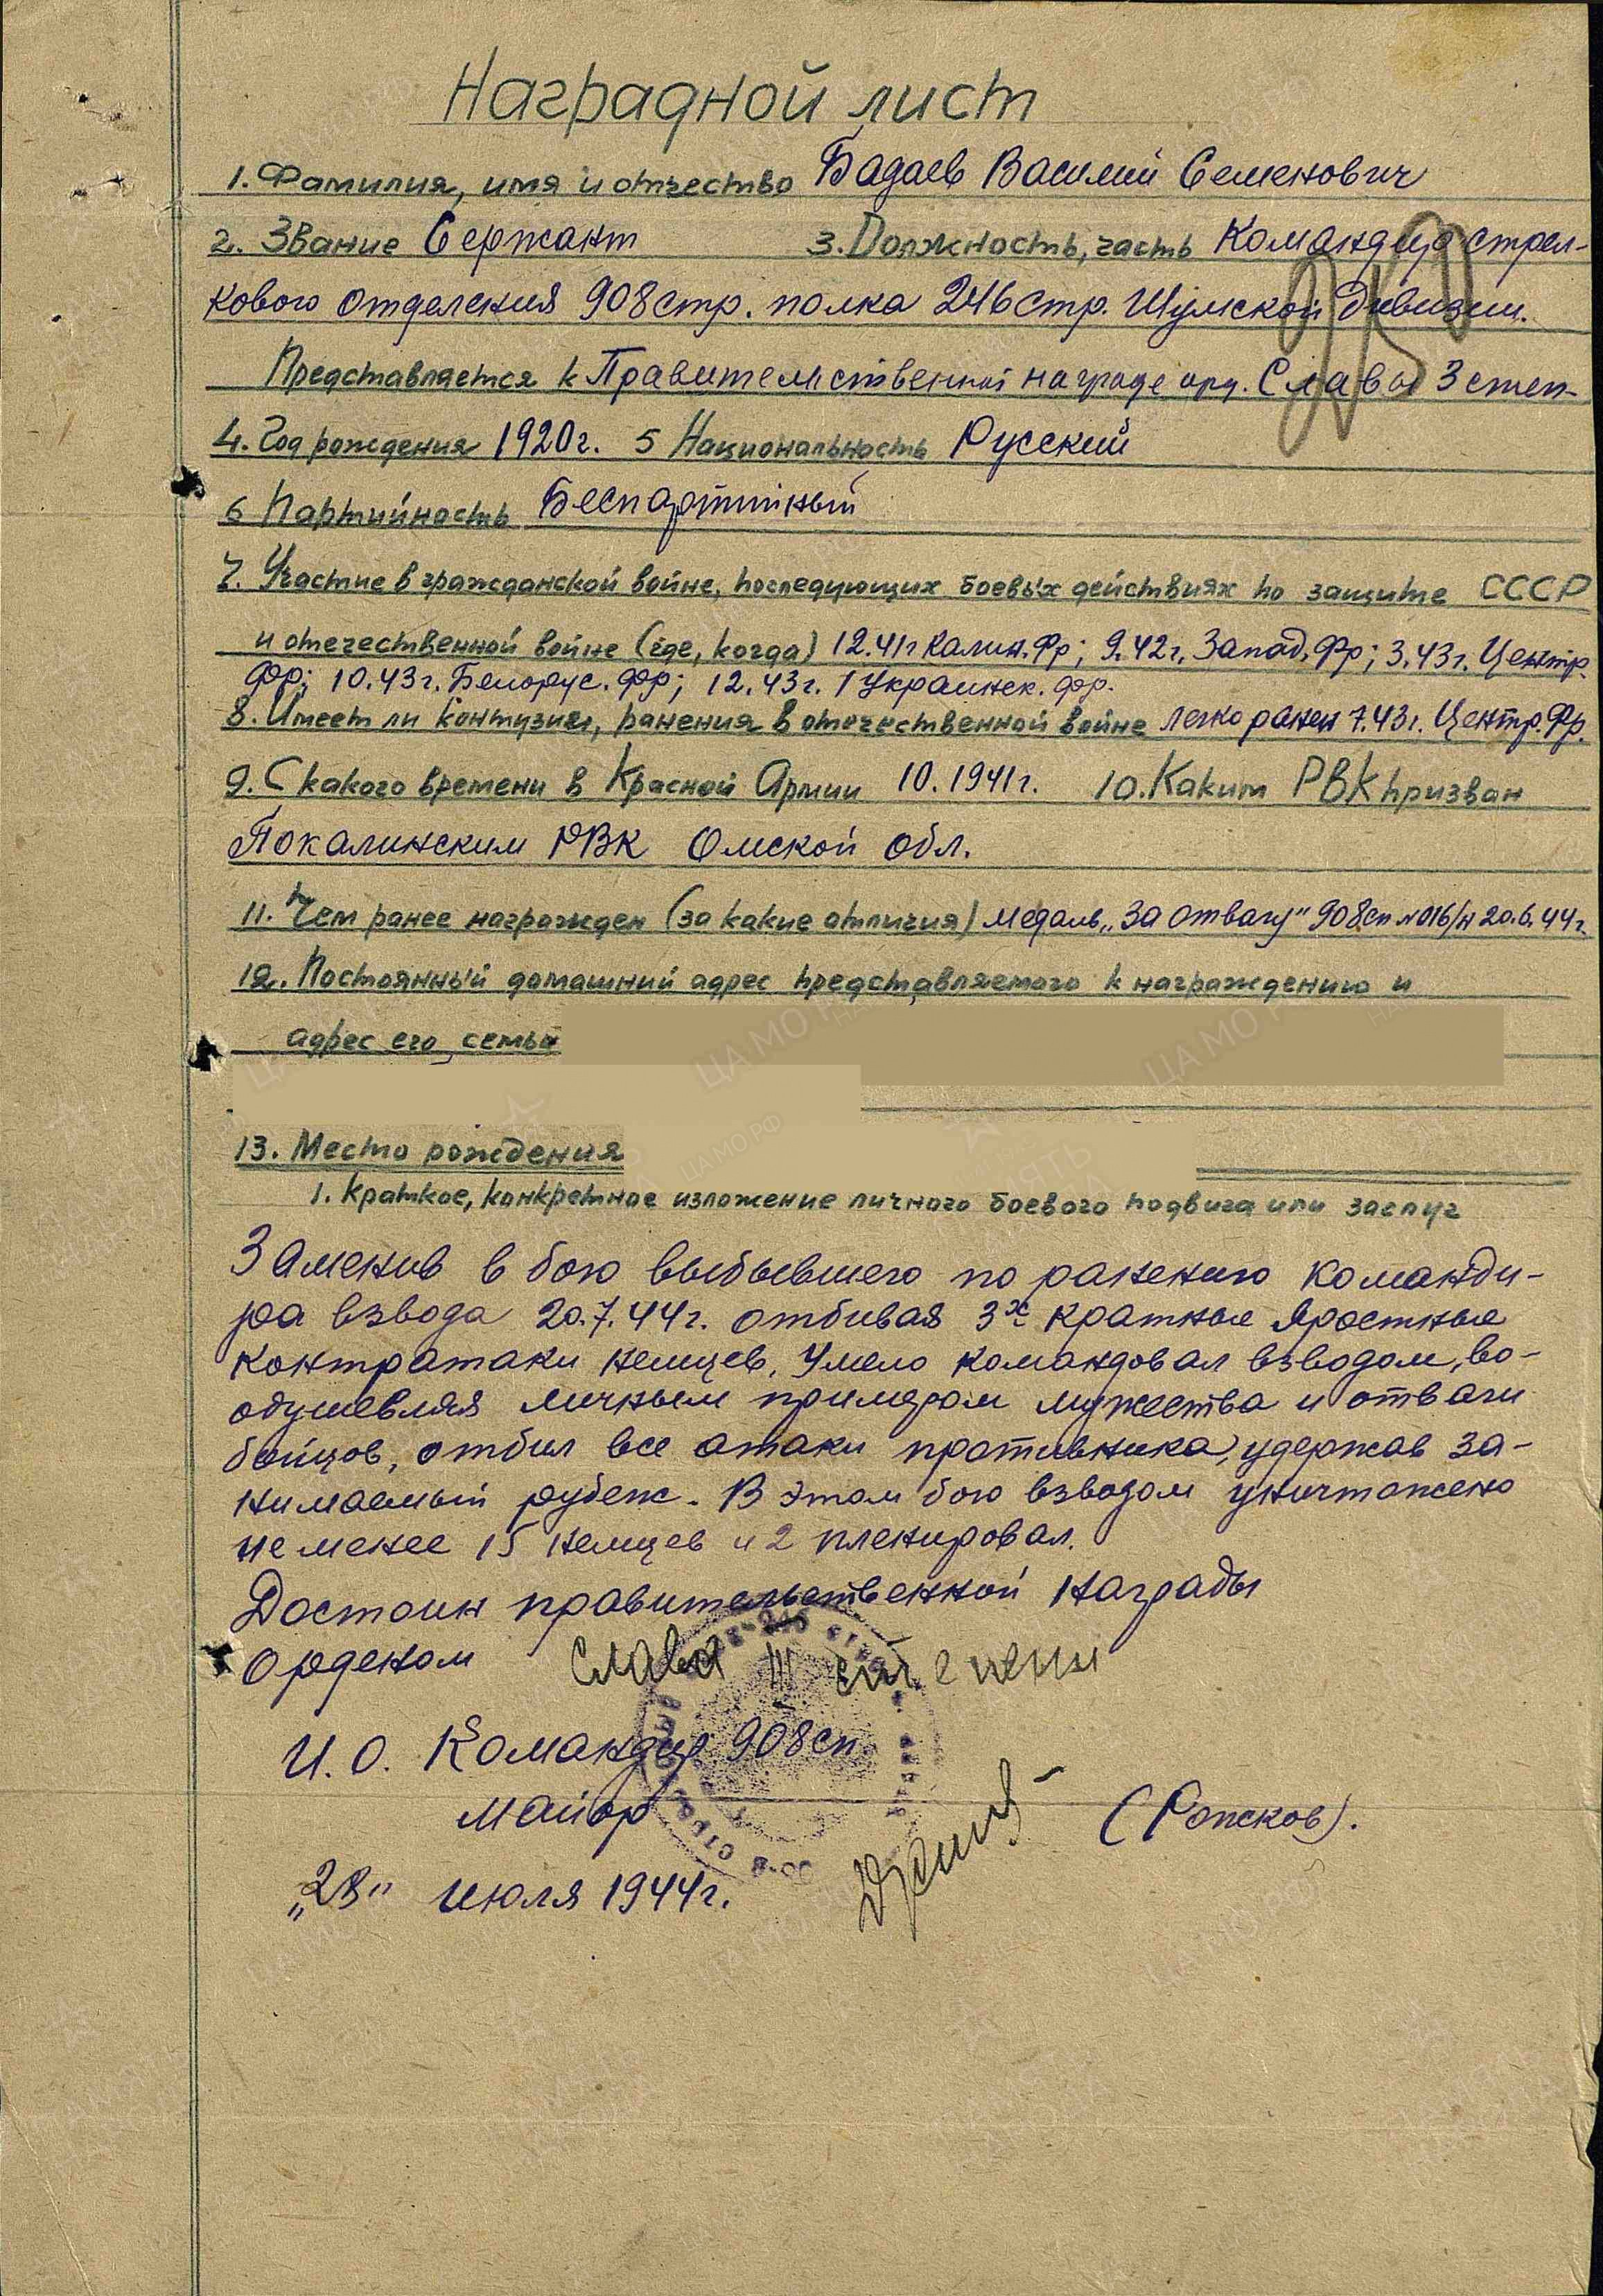 Наградной лист
1. Фамилия, имя и отчество Бадаев Василий Семенович
2. Звание Сержант 3. Должность, часть Командир стрел-
кового отделения 908 стр. полка 246 стр. Шумской дивизии.
Представляется к Правительственной награде орд. Славы 3 степ-
4. Год рождения 1920г. 5 Национальность Русский
6 Партийность Беспартийный
7. Участие в гражданской войне, последующих боевых действиях по защите СССР
и отечественной войне (где, когда) 12.41г Калин.Фр; 9.42г. Запад.Фр; 3.43г. Центр.
фр; 10.43г. Белорус. фр; 12.43г. 1 Украинск. фр.
8. Имеет ли контузии, ранения в отечественной войне легко ранен 7.43г. Центр.Фр.
9. С какого времени в Красной Армии 10.1941г. 10. Каким РВК призван
Покалинским РВК Омской обл.
11. Чем ранее награжден (за какие отличия) медаль „За отвагу" 908сп №016/н 20.6.44г.
12. Постоянный домашний адрес представляемого к награждению и
адрес его семьи
13. Место рождения
1. Краткое, конкретное изложение личного боевого подвига или заслуг
Заменив в бою выбывшего по ранению команди-
ра взвода 20.7.44г. отбивая 3х кратные яростные
контратаки немцев, умело командовал взводом, во-
одушевляя личным примером мужества и отваги
бойцов, отбил все атаки противника, удержав за-
нимаемый рубеж. В этом бою взводом уничтожено
не менее 15 немцев и 2 пленировал.
Достоин правительственной награды
орденом Слава III степени
И.О. Командир 908сп
майор (Ропсков).
„28" июля 1944г.